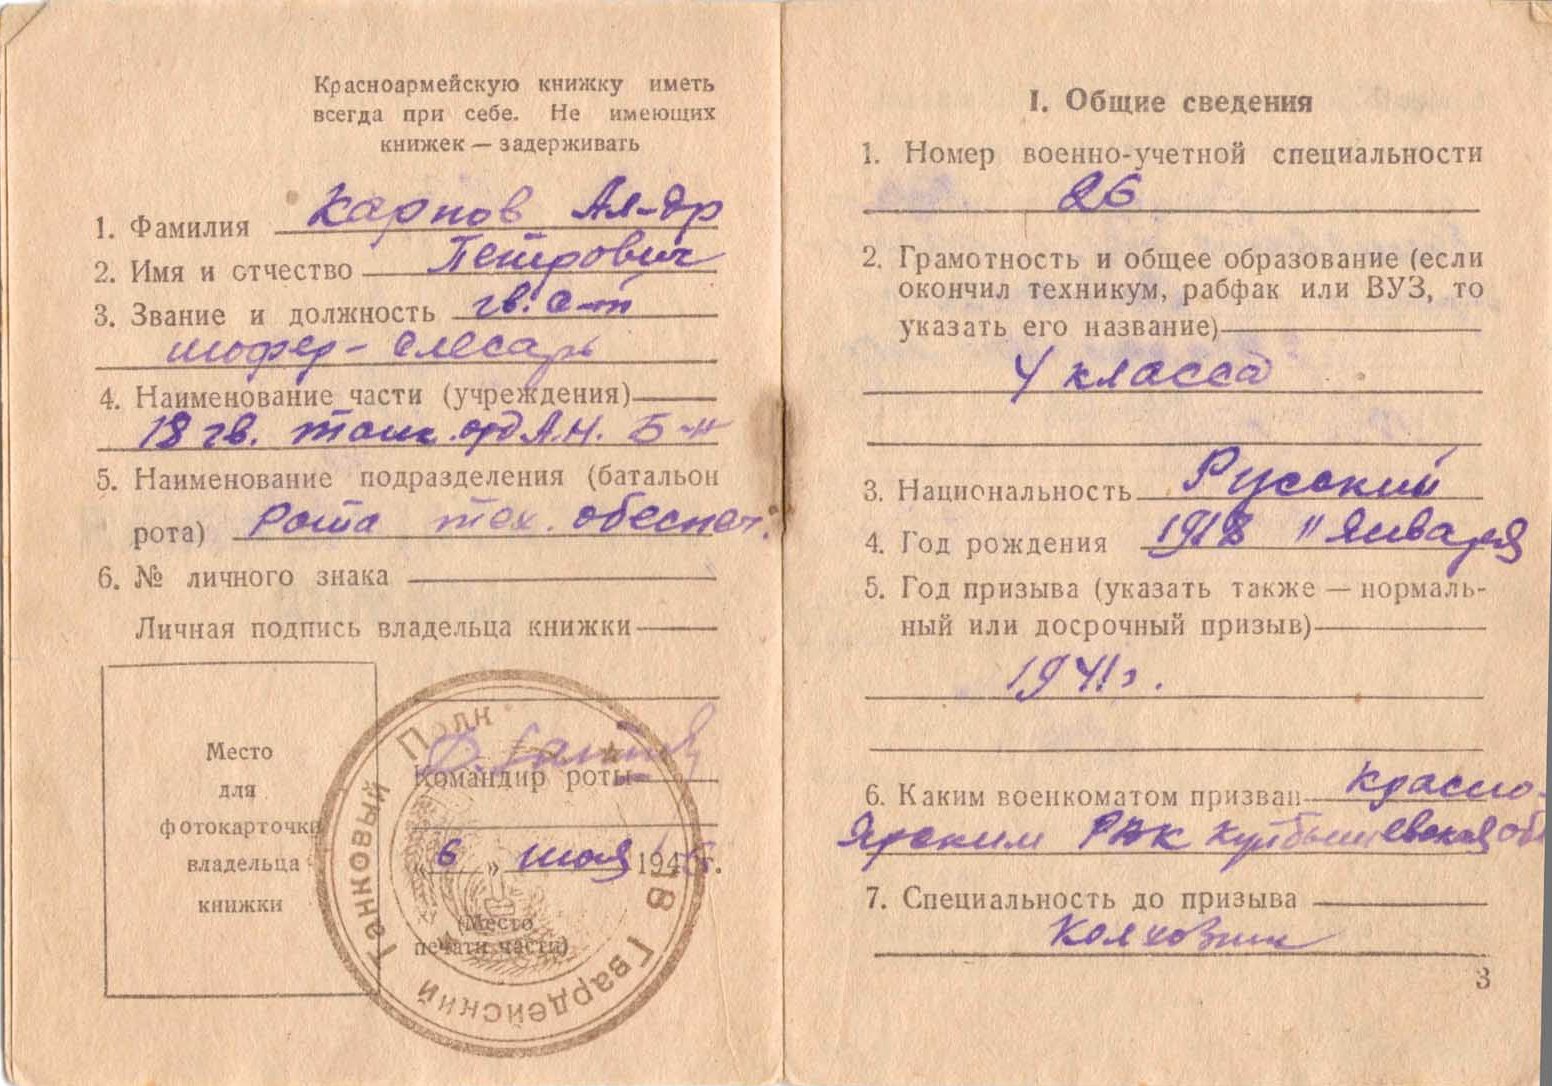 Красноармейскую книжку иметь
всегда при себе. Не имеющих
книжек — задерживать
1. Фамилия Карпов Ал-др
2. Имя и отчество Петрович
3. Звание и должность гв. с-т
шофер - слесарь
4. Наименование части (учреждения)
18 гв. танк. орд А.Н. Б-Н
5. Наименование подразделения (батальон
рота) Рота тех. обеспеч.
6. № личного знака
Личная подпись владельца книжки
Место
для
фотокарточки
владельца
книжки
Командир роты
« 6 » 194 г.
(Место
печати части)
18 Гвардейский Танковый Полк
I. Общие сведения
1. Номер военно-учетной специальности
26
2. Грамотность и общее образование (если
окончил техникум, рабфак или ВУЗ, то
указать его название)
4 класса
3. Национальность Русский
4. Год рождения 1918 11 Января
5. Год призыва (указать также — нормаль-
ный или досрочный призыв)
1941 г.
6. Каким военкоматом призван Красно-
Ярским РВК Куйбышевская об
7. Специальность до призыва
Колхозник
3